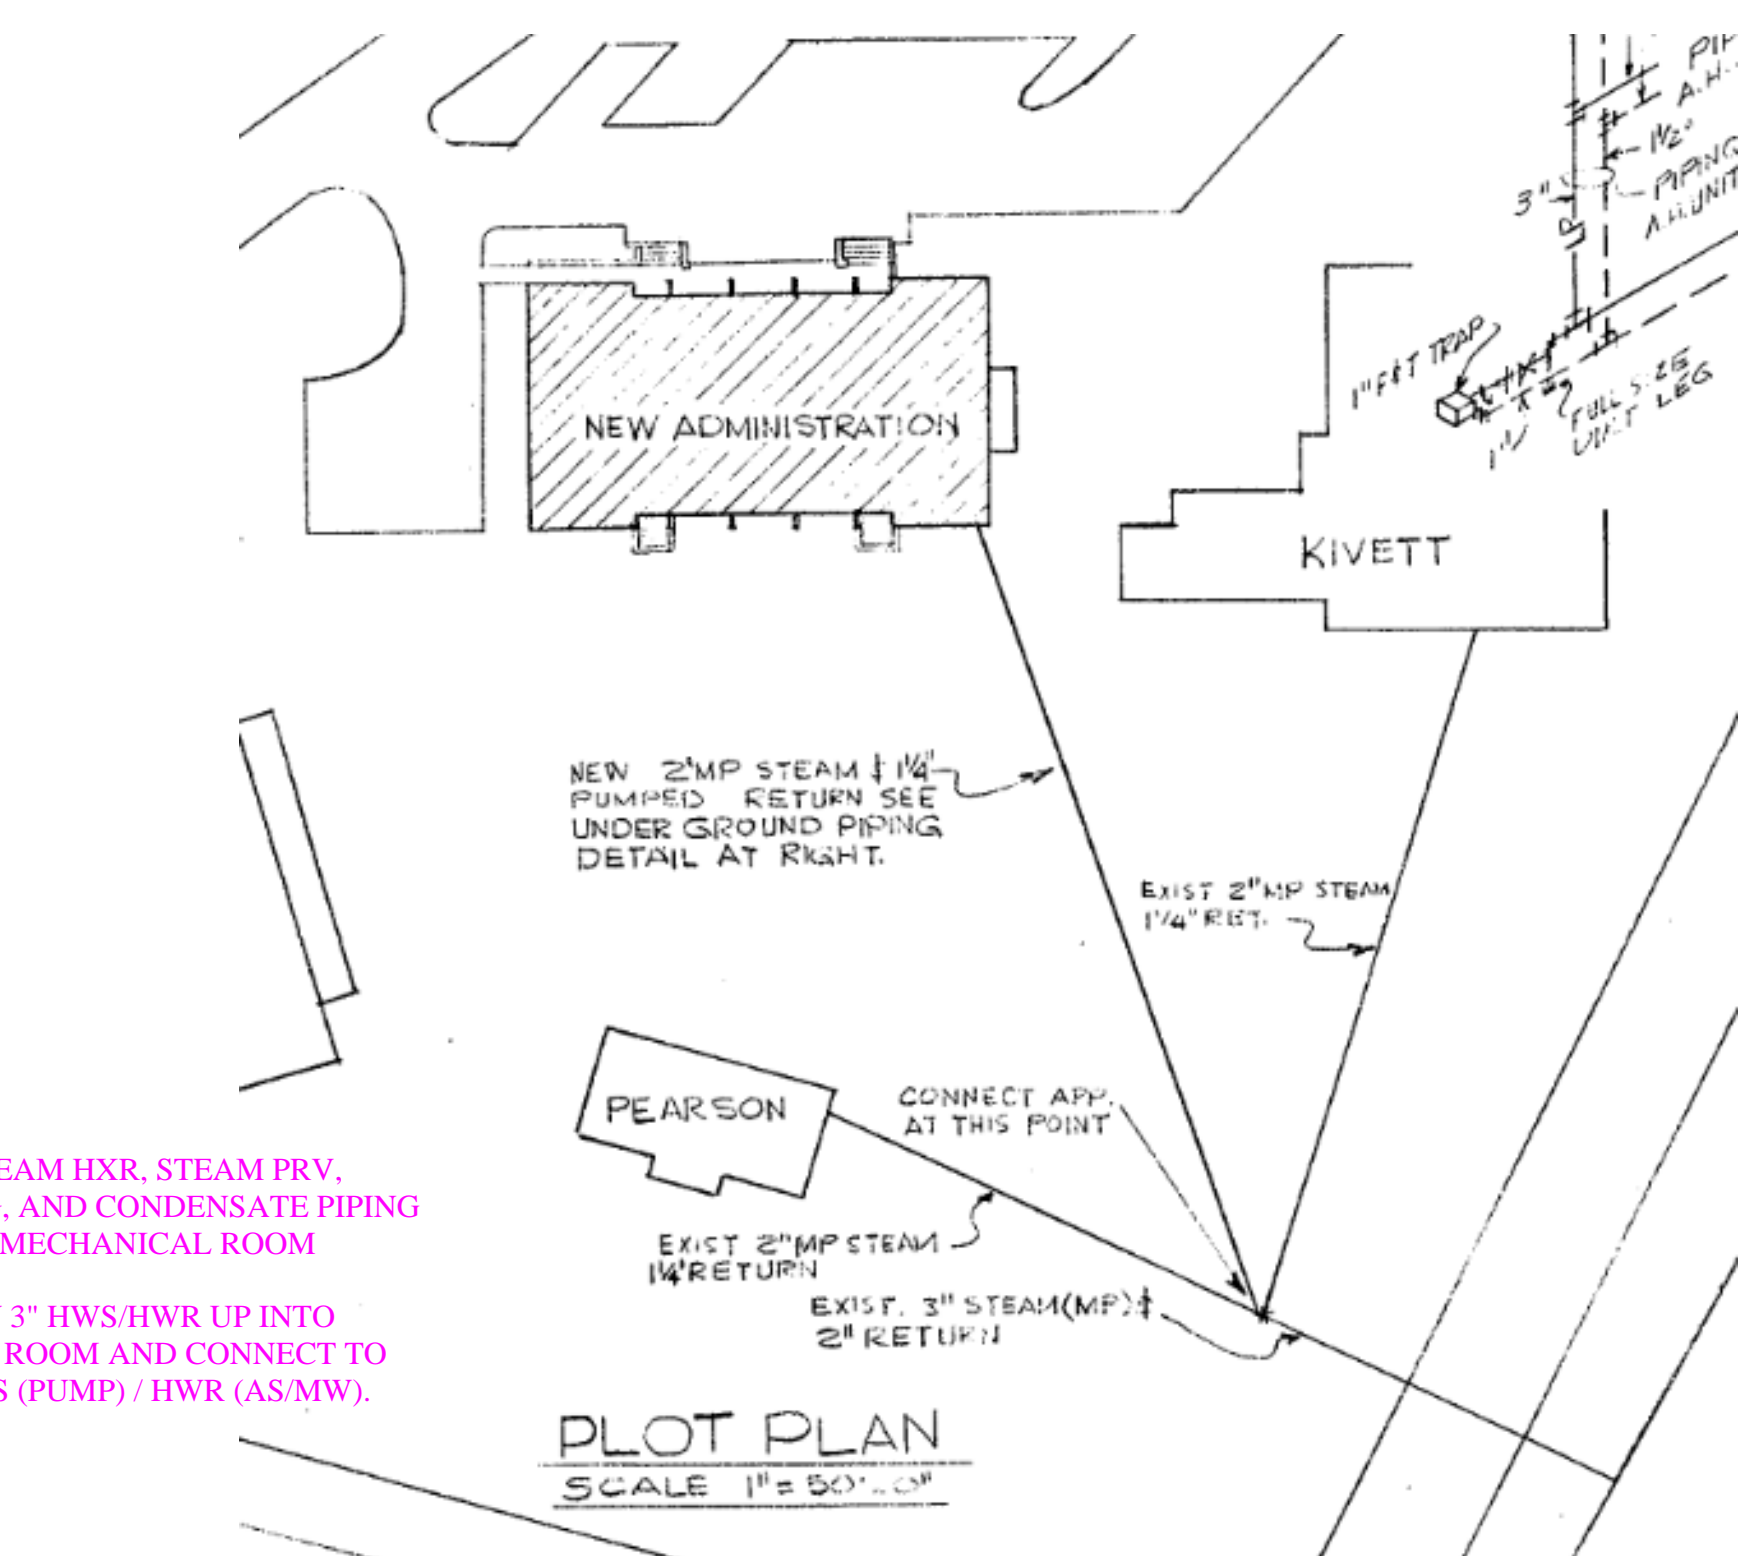 PIP
A.H.
1½"
PIPING
A.H. UNIT
3"
LP
1" F&T TRAP
FULL SIZE
LEG
1"
NEW ADMINISTRATION
KIVETT
NEW 2"MP STEAM & 1¼"
PUMPED RETURN SEE
UNDER GROUND PIPING
DETAIL AT RIGHT.
EXIST 2"MP STEAM
1¼" RET.
PEARSON
CONNECT APP.
AT THIS POINT
EXIST 2"MP STEAM
1¼"RETURN
EXIST. 3" STEAM(MP) &
2" RETURN
EAM HXR, STEAM PRV,
, AND CONDENSATE PIPING
MECHANICAL ROOM
3" HWS/HWR UP INTO
ROOM AND CONNECT TO
S (PUMP) / HWR (AS/MW).
PLOT PLAN
SCALE 1" = 50'-0"